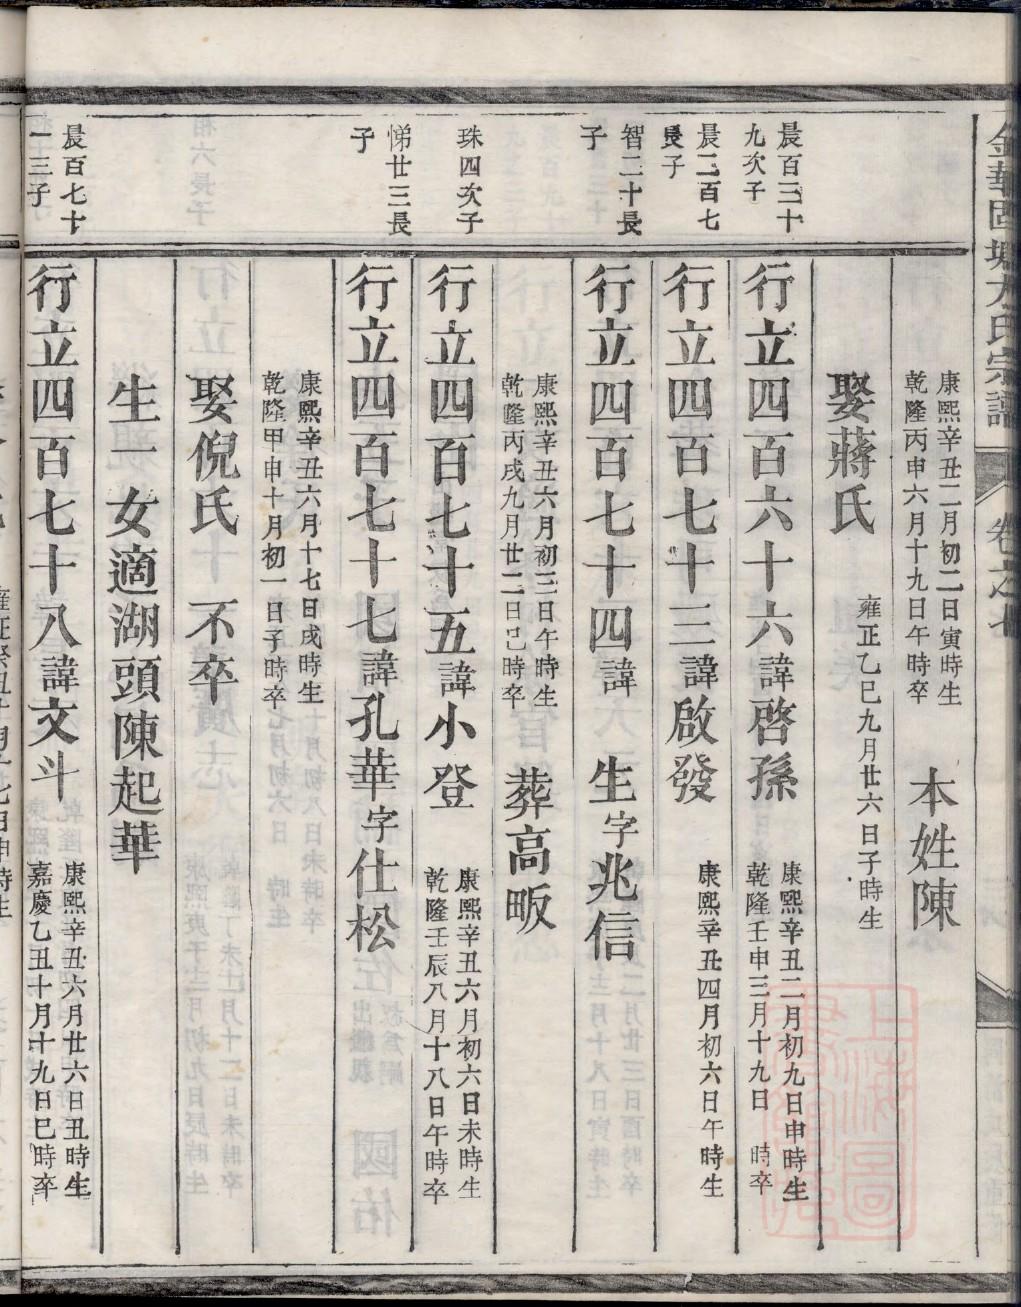 金華固塘方氏宗譜 卷之七
康熙辛丑二月初二日寅時生
乾隆丙申六月十九日午時卒
本姓陳
娶蔣氏
雍正乙巳九月廿六日子時生
晨百三十
九次子
行立四百六十六諱啓孫
康熙辛丑二月初九日申時生
乾隆壬申三月十九日 時卒
晨二百七
長子
行立四百七十三諱啟發
康熙辛丑四月初六日午時生
智二十長
子
行立四百七十四諱 生字兆信
康熙辛丑六月初三日午時生
乾隆丙戌九月廿二日巳時卒
葬高畈
珠四次子
行立四百七十五諱小登
康熙辛丑六月初六日未時生
乾隆壬辰八月十八日午時卒
悌廿三長
子
行立四百七十七諱孔華字仕松
康熙辛丑六月十七日戌時生
乾隆甲申十月初一日子時卒
娶倪氏 不卒
生一女適湖頭陳起華
晨百七十
一三子
行立四百七十八諱文斗
康熙辛丑六月廿六日丑時生
嘉慶乙丑十月十九日巳時卒